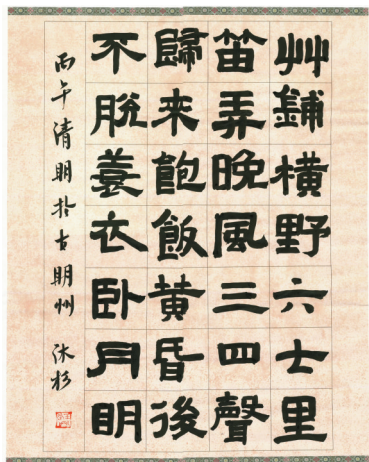 艸鋪橫野六士里
笛弄晚風三四聲
歸來飽飯黄昏後
不脫蓑衣卧月明
丙午清明扵古明州 沐杉